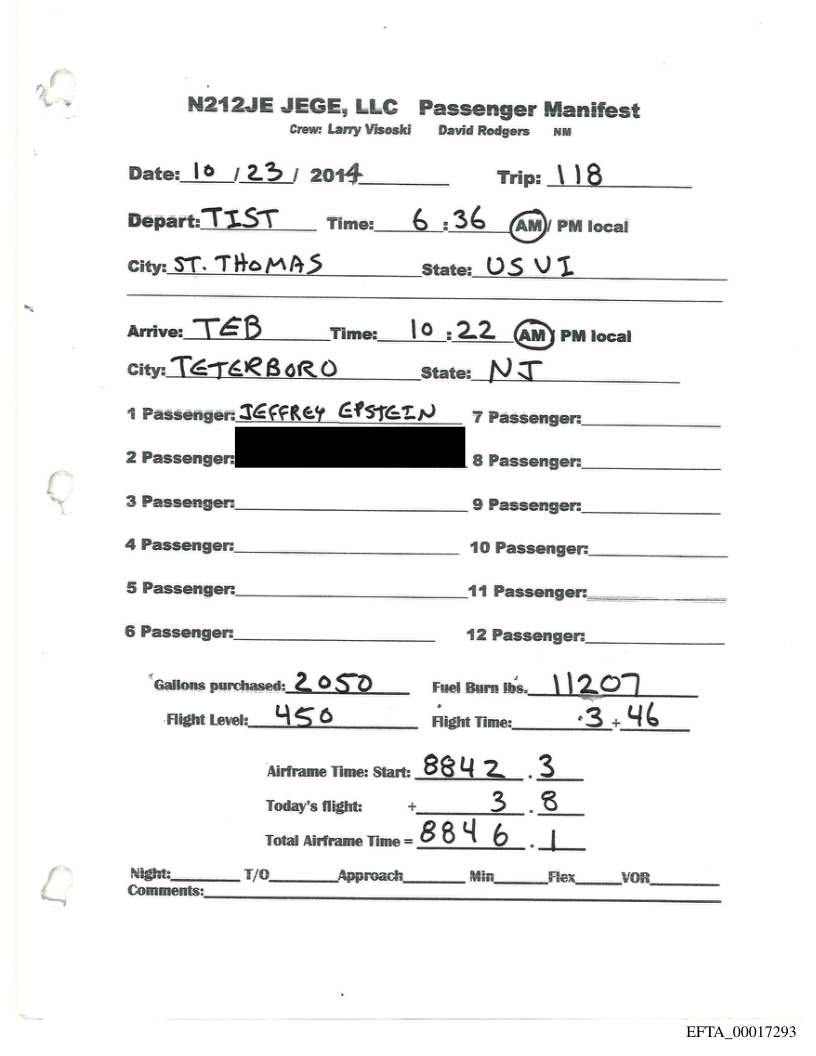 N212JE JEGE, LLC Passenger Manifest
Crew: Larry Visoski David Rodgers NM
Date: 10 / 23 / 2014 Trip: 118
Depart: TIST Time: 6 : 36 AM/ PM local
City: ST. THOMAS State: USVI
Arrive: TEB Time: 10 : 22 AM/ PM local
City: TETERBORO State: NJ
1 Passenger: JEFFREY EPSTEIN 7 Passenger:
2 Passenger: 8 Passenger:
3 Passenger: 9 Passenger:
4 Passenger: 10 Passenger:
5 Passenger: 11 Passenger:
6 Passenger: 12 Passenger:
Gallons purchased: 2050 Fuel Burn lbs. 11207
Flight Level: 450 Flight Time: 3 + 46
Airframe Time: Start: 8842 . 3
Today's flight: + 3 . 8
Total Airframe Time = 8846 . 1
Night: T/O Approach Min Flex VOR
Comments:
EFTA_00017293